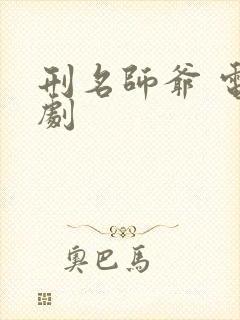 刑名師爺 電
劇
奧巴馬